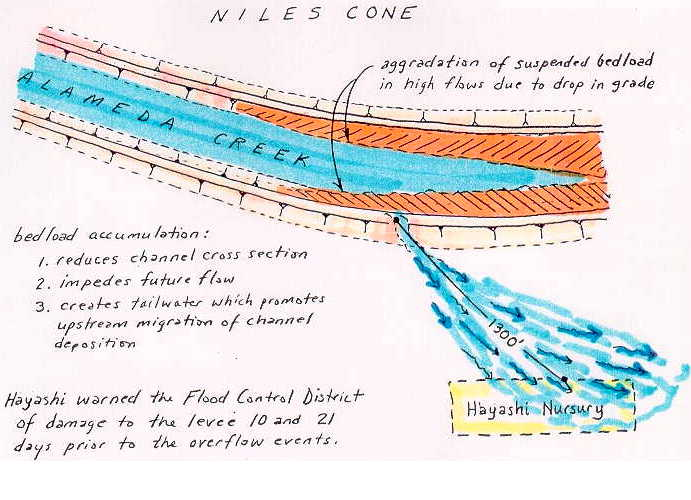 NILES CONE
aggradation of suspended bedload
in high flows due to drop in grade
ALAMEDA CREEK
bedload accumulation:
1. reduces channel cross section
2. impedes future flow
3. creates tailwater which promotes
upstream migration of channel
deposition
1300'
Hayashi Nursury
Hayashi warned the Flood Control District
of damage to the levee 10 and 21
days prior to the overflow events.